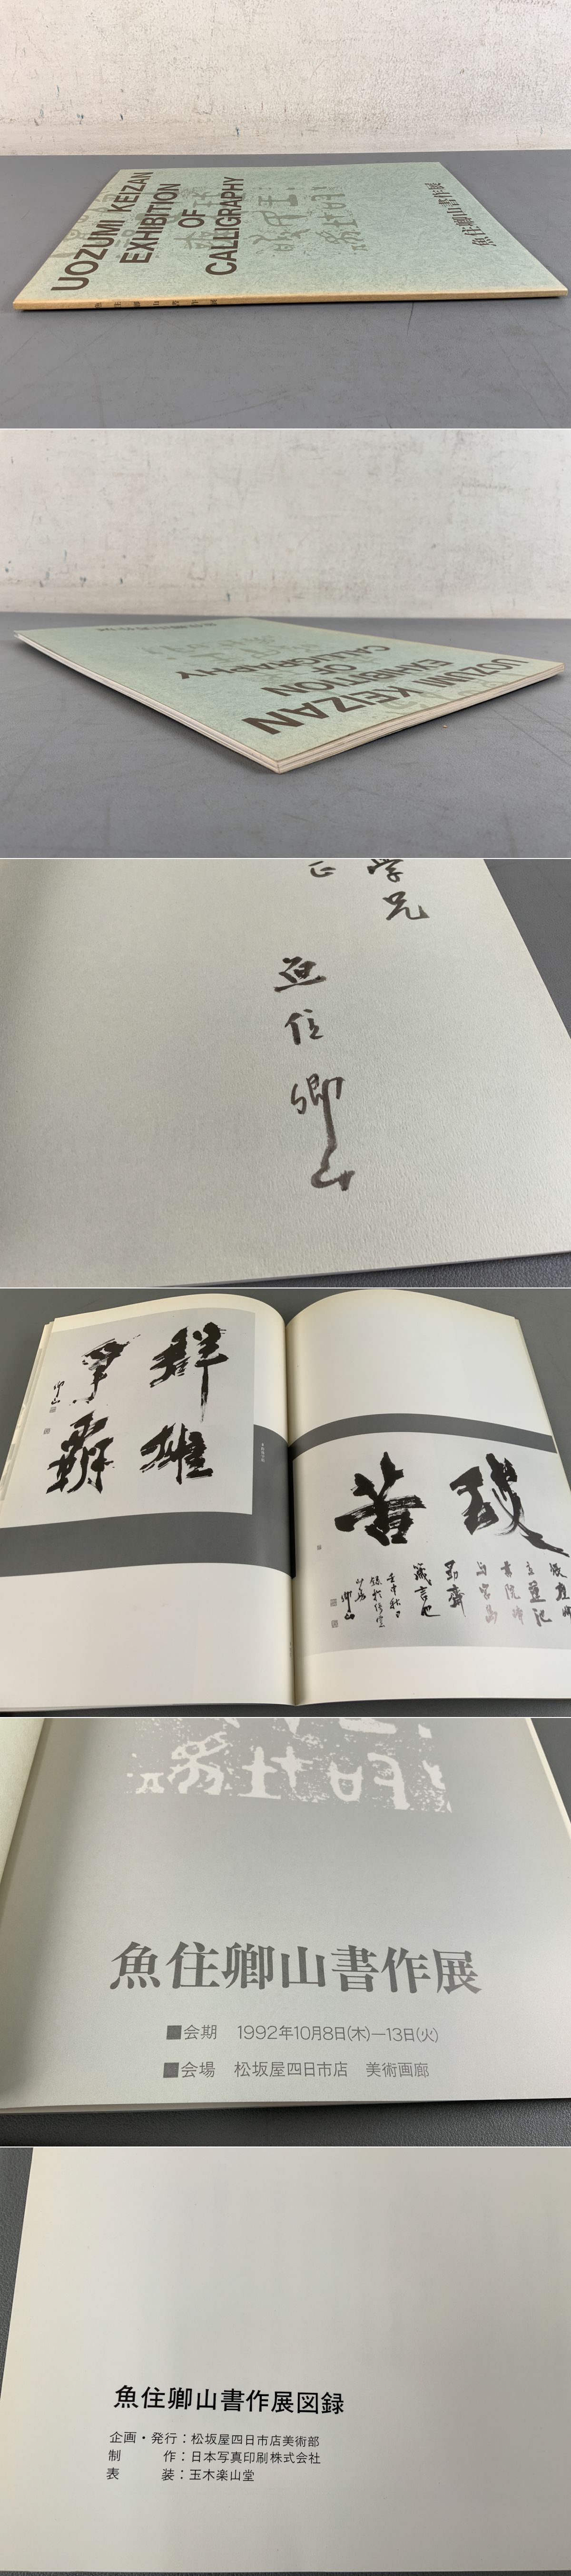 UOZUMI KEIZAN
EXHIBITION
OF
CALLIGRAPHY
魚住卿山書作展
UOZUMI KEIZAN
EXHIBITION
OF
CALLIGRAPHY
学兄
正
魚住卿山
群雄
争覇
卿山
琢
苦
箴言也
壬申秋日
卿山
魚住卿山書作展
■会期 1992年10月8日(木)—13日(火)
■会場 松坂屋四日市店 美術画廊
魚住卿山書作展図録
企画・発行：松坂屋四日市店美術部
制作：日本写真印刷株式会社
表装：玉木楽山堂